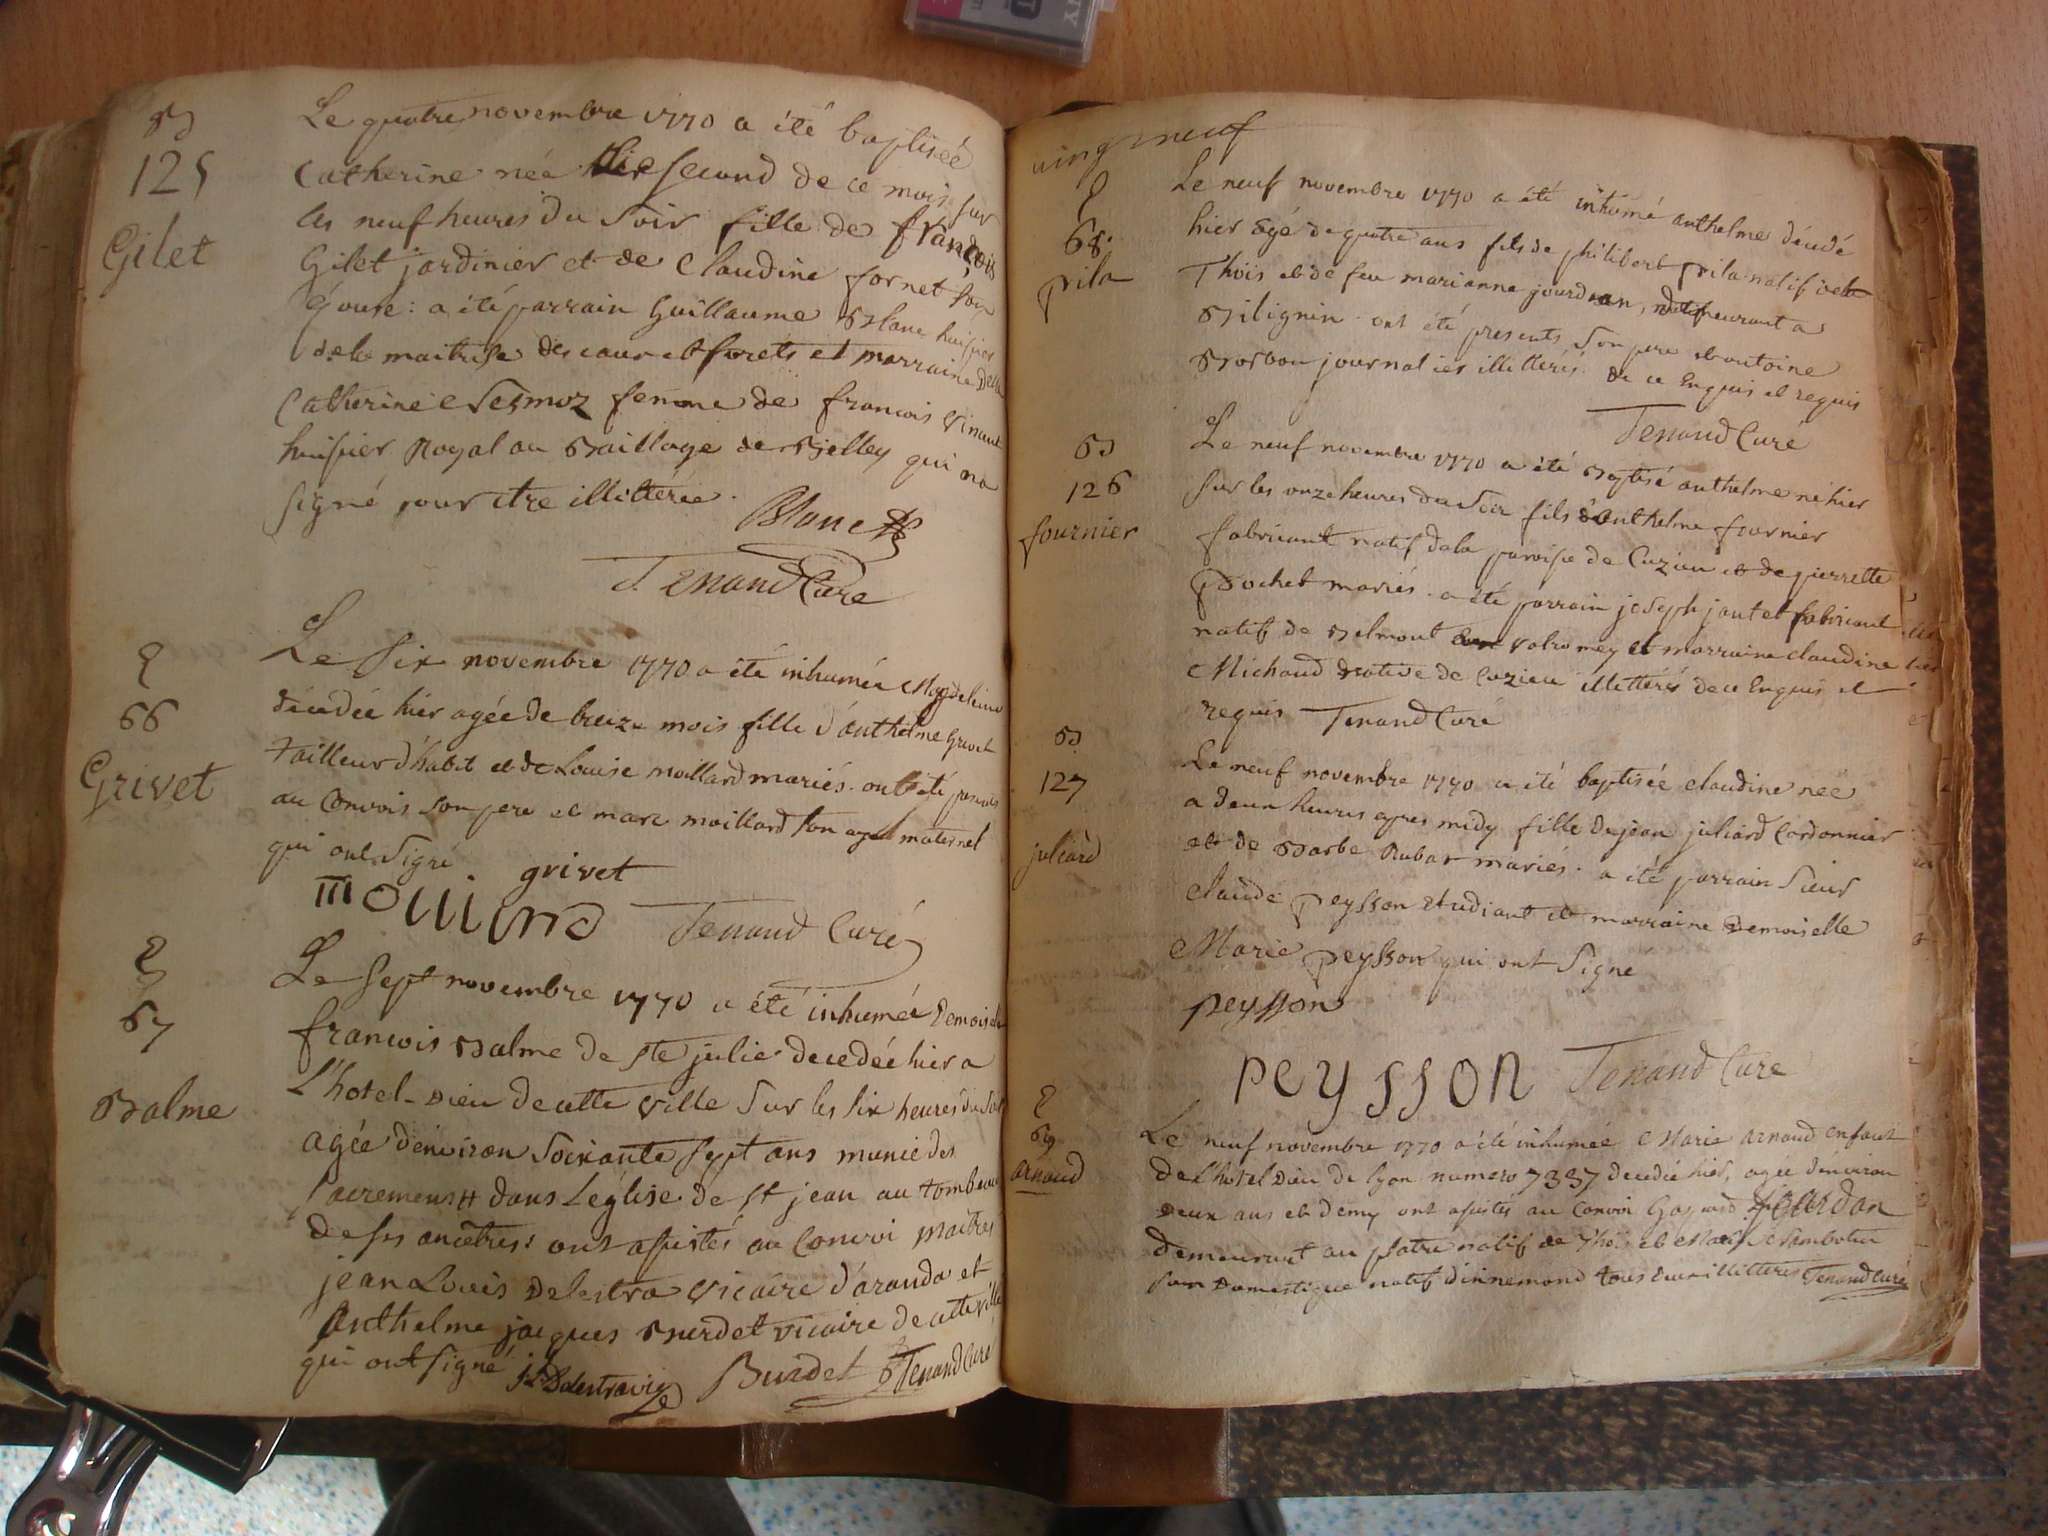 B
125
Gilet
Le quatre novembre 1770 a été baptiseé
Catherine née hier second de ce mois sur
les neuf heures du soir fille de françois
Gilet jardinier et de Claudine fornet son
épouse: a été parrain Guillaume Blanc huissier
de la maitrise des eaux et forets et marraine Delle
Catherine Sesmoz femme de francois Vinant
huissier Royal au Baillage de Belley qui na
signé pour etre illitterée.
Blanc
Tenand Curé
S
66
Grivet
Le six novembre 1770 a été inhumée Magdeleine
décedée hier agée de treize mois fille d'anthelme Grivet
tailleur d'habit et de Louise moillard mariés. ont été présents
au Convois son pere et marc moillard son ayeul maternel
qui ont signé
grivet
Tenand Curé
S
67
Balme
Le sept novembre 1770 a été inhumée Demoiselle
francois Balme de ste julie decedée hier a
L'hotel-Dieu de cette ville sur les six heures du soir
agée d'environ soixante sept ans munie des
sacremens dans L'église de st jean au tombeau
de ses ancètres: ont assistés au Convoi maitres
jean Louis Delestra vicaire d'aranda et
Anthelme jacques Burdet vicaire de cette ville
qui ont signé
Burdet Tenand Curé
vingt neuf
S
68.
pila
Le neuf novembre 1770 a été inhumé anthelme décedé
hier agé de quatre ans fils de philibert pila natif de
Thois et de feu marianne jourdan, demeurant a
Bilignin. ont été presents son pere et antoine
Borbon journalier illitterés. de ce Enquis et requis
Tenand Curé
B
126
fournier
Le neuf novembre 1770 a été Baptisé anthelme né hier
sur les onze heures du soir fils d'anthelme fournier
fabricant natif de la paroisse de Cuzieu et de pierrette
pochet mariés. a été parrain joseph jantet fabricant
natif de Belmont en valromey et marraine claudine
Michaud native de Cuzieu illitterés de ce Enquis et
requis Tenand Curé
B
127
juliard
Le neuf novembre 1770 a été baptisée claudine née
a deux heures apres midy fille de jean juliard Cordonnier
et de Barbe Rubat mariés. a été parrain sieur
claude peysson etudiant et marraine Demoiselle
Marie peysson qui ont signé
peysson
peysson Tenand Curé
S
69
arnaud
Le neuf novembre 1770 a été inhumée Marie arnaud enfant
de L'hotel Dieu de lyon numero 7337 decedé hier, agée d'environ
deux ans et demy ont assistés au Convoi Gaspard jourdan
demeurant au platre natif de Thois et
son Domestique natif d'innemond tous deux illitterés Tenand Curé